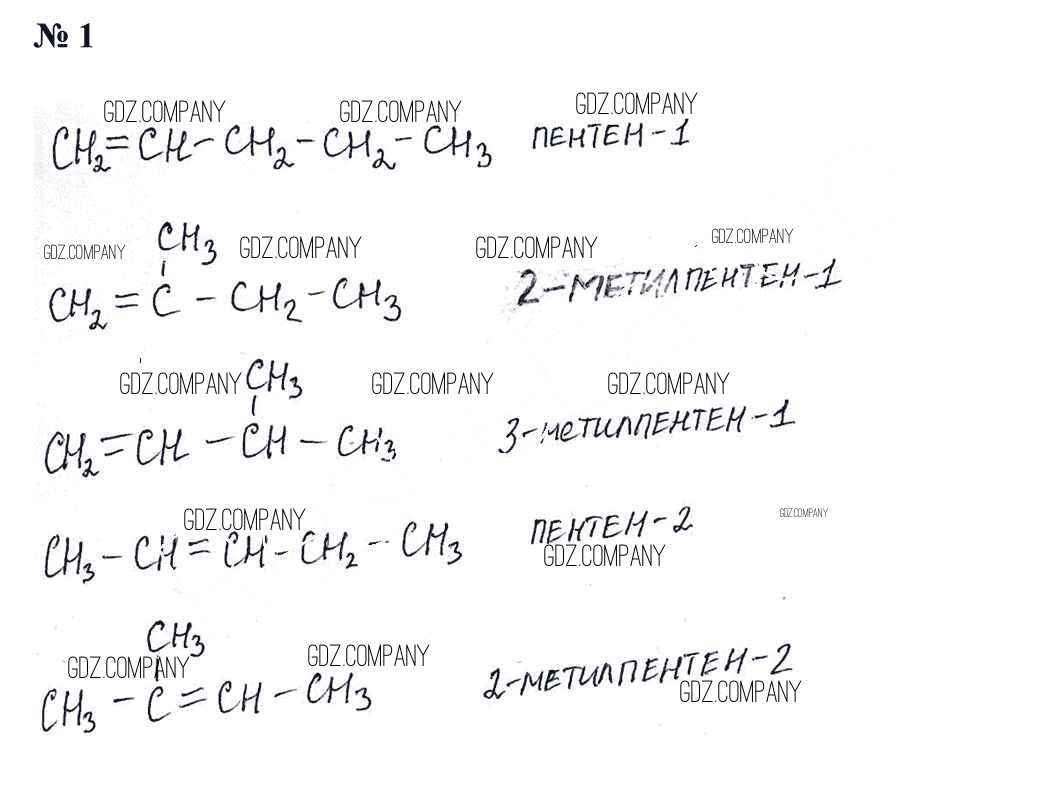 № 1
GDZ.COMPANY GDZ.COMPANY GDZ.COMPANY
CH₂=CH-CH₂-CH₂-CH₃ ПЕНТЕН-1
GDZ.COMPANY CH₃ GDZ.COMPANY GDZ.COMPANY GDZ.COMPANY
CH₂=C-CH₂-CH₃ 2-МЕТИЛПЕНТЕН-1
GDZ.COMPANY CH₃ GDZ.COMPANY GDZ.COMPANY
CH₂=CH-CH-CH₃ 3-МЕТИЛПЕНТЕН-1
GDZ.COMPANY GDZ.COMPANY
CH₃-CH=CH-CH₂-CH₃ ПЕНТЕН-2
GDZ.COMPANY
CH₃
GDZ.COMPANY GDZ.COMPANY
CH₃-C=CH-CH₃ 2-МЕТИЛПЕНТЕН-2
GDZ.COMPANY